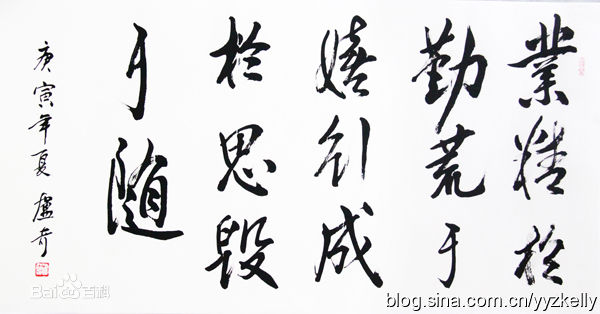 業精於
勤荒于
嬉行成
於思毀
于隨
庚寅年夏 盧奇
Baidu百科
blog.sina.com.cn/yyzkelly